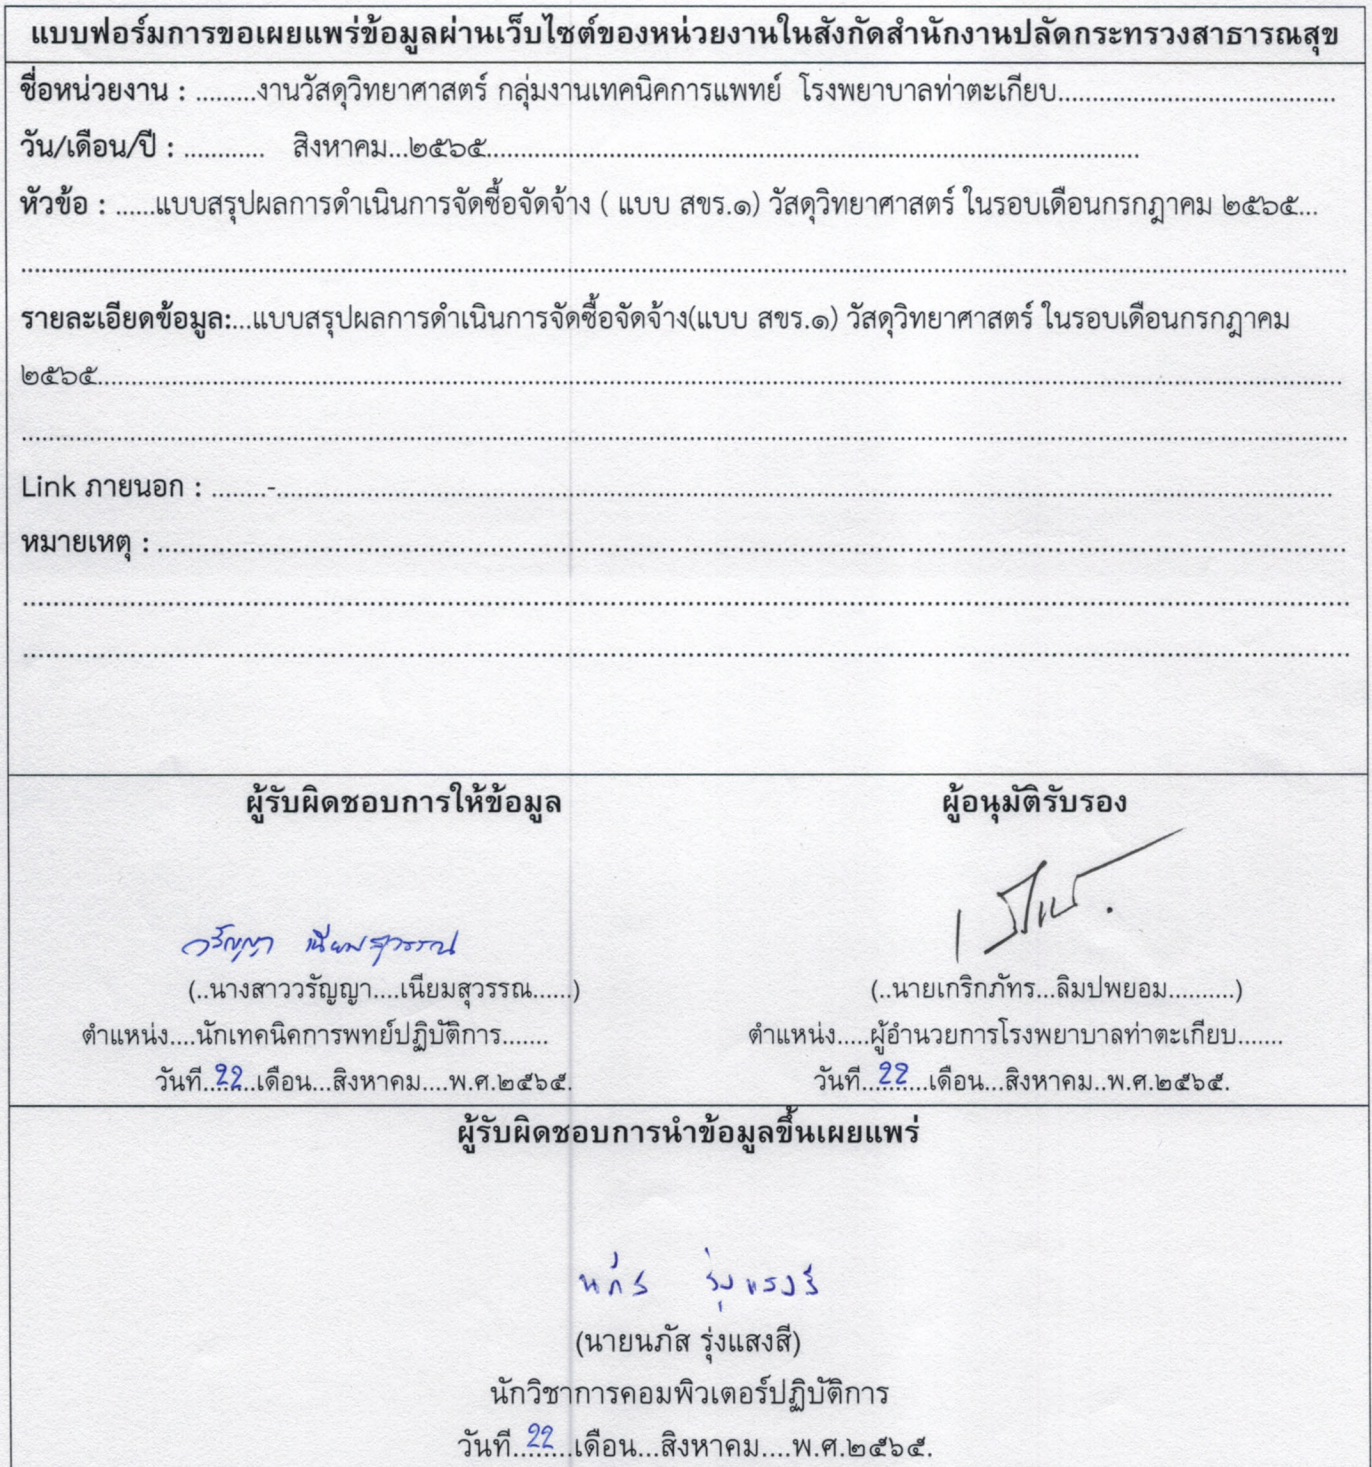 แบบฟอร์มการขอเผยแพร่ข้อมูลผ่านเว็บไซต์ของหน่วยงานในสังกัดสำนักงานปลัดกระทรวงสาธารณสุข
ชื่อหน่วยงาน : .........งานวัสดุวิทยาศาสตร์ กลุ่มงานเทคนิคการแพทย์ โรงพยาบาลท่าตะเกียบ..........................................
วัน/เดือน/ปี : ............ สิงหาคม...๒๕๖๕....................................................................................................
หัวข้อ : ......แบบสรุปผลการดำเนินการจัดซื้อจัดจ้าง ( แบบ สขร.๑) วัสดุวิทยาศาสตร์ ในรอบเดือนกรกฎาคม ๒๕๖๕...
รายละเอียดข้อมูล:...แบบสรุปผลการดำเนินการจัดซื้อจัดจ้าง(แบบ สขร.๑) วัสดุวิทยาศาสตร์ ในรอบเดือนกรกฎาคม
๒๕๖๕....................................................................................................
Link ภายนอก : ........-....................................................................................................
หมายเหตุ : ....................................................................................................
ผู้รับผิดชอบการให้ข้อมูล
วรัญญา เนียมสุวรรณ
(..นางสาววรัญญา....เนียมสุวรรณ......)
ตำแหน่ง....นักเทคนิคการพทย์ปฏิบัติการ.......
วันที่..22..เดือน...สิงหาคม....พ.ศ.๒๕๖๕.
ผู้อนุมัติรับรอง
(..นายเกริกภัทร...ลิมปพยอม..........)
ตำแหน่ง.....ผู้อำนวยการโรงพยาบาลท่าตะเกียบ.......
วันที่..22...เดือน...สิงหาคม..พ.ศ.๒๕๖๕.
ผู้รับผิดชอบการนำข้อมูลขึ้นเผยแพร่
นภัส รุ่งแสงสี
(นายนภัส รุ่งแสงสี)
นักวิชาการคอมพิวเตอร์ปฏิบัติการ
วันที่..22...เดือน...สิงหาคม....พ.ศ.๒๕๖๕.